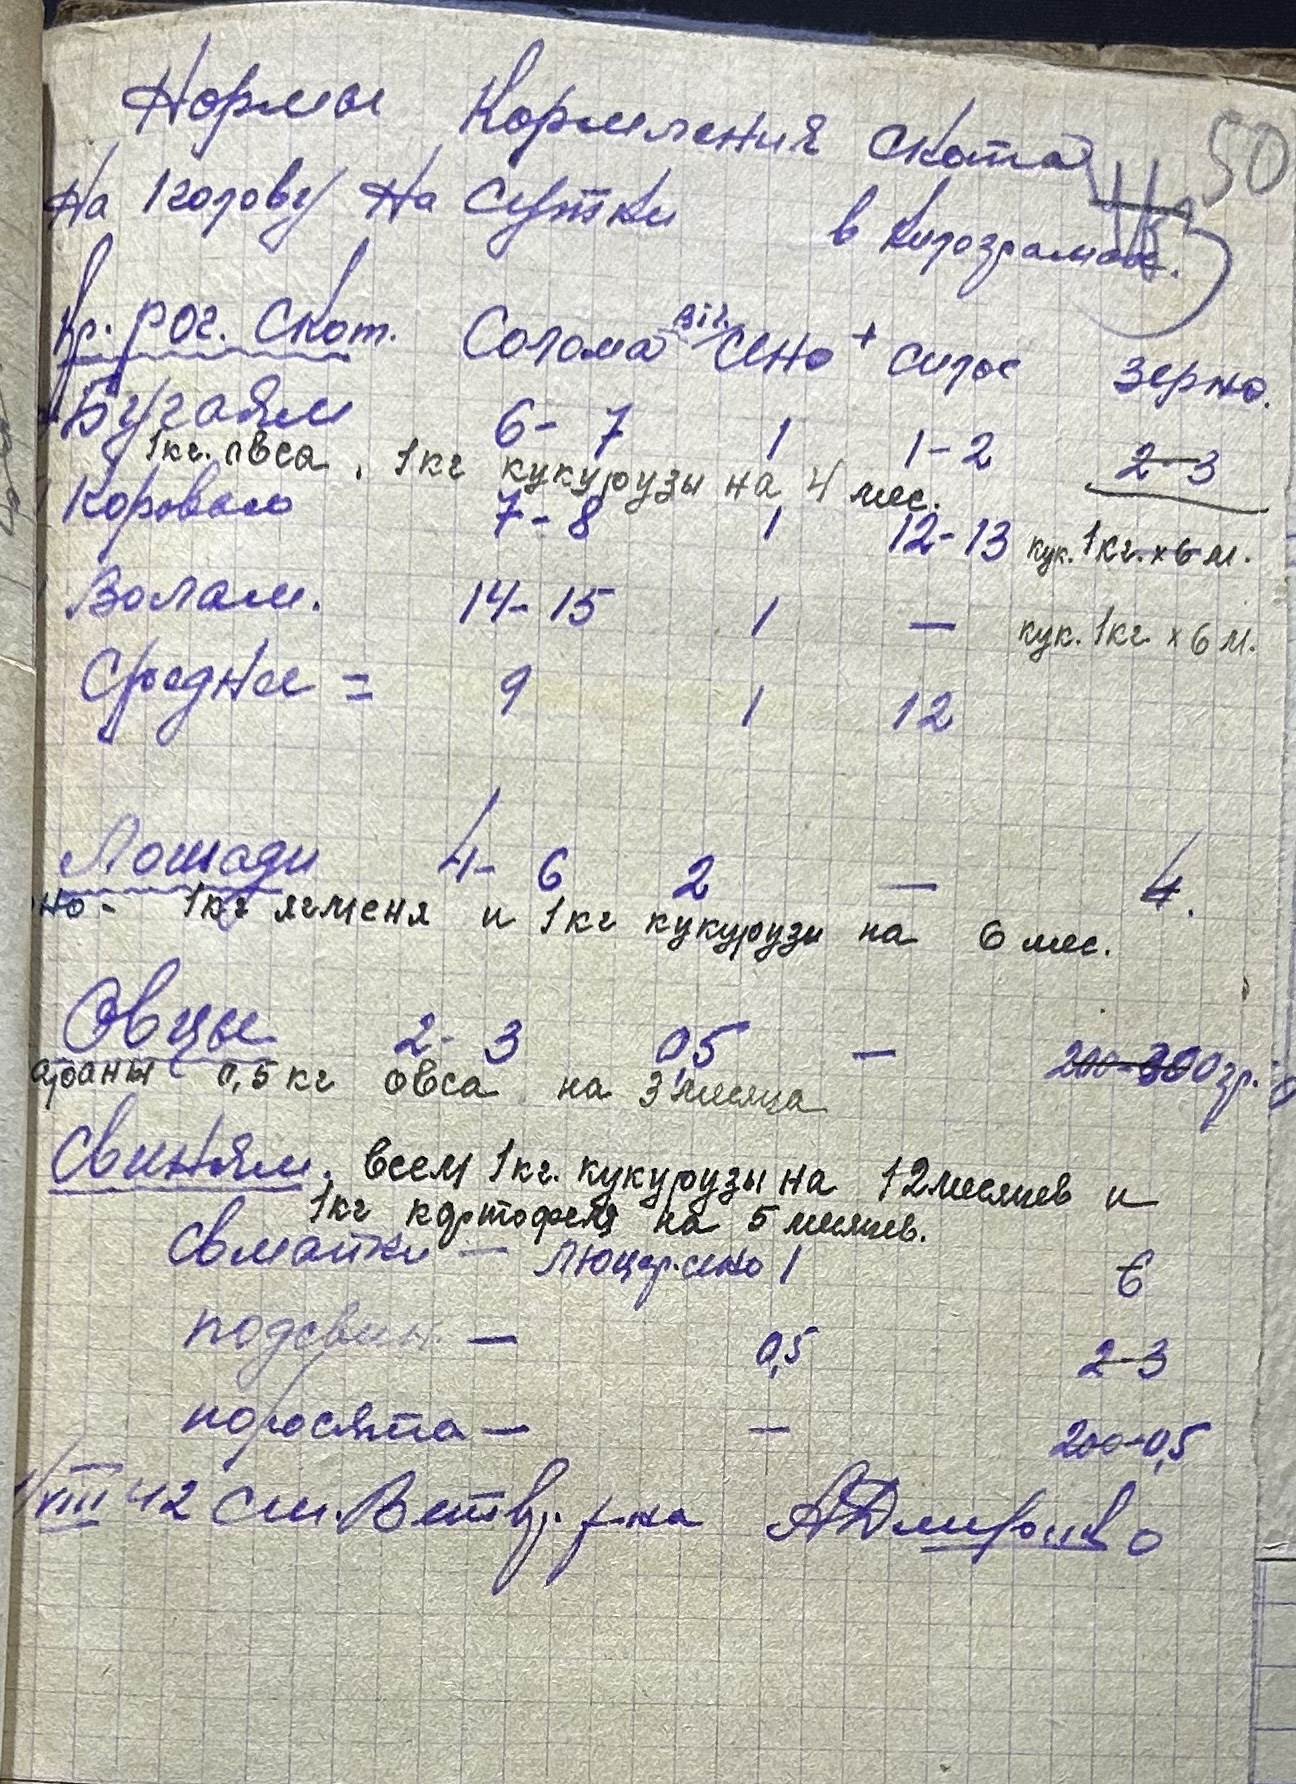 Нормы Кормления скота 50
На 1 голову На Сутки в килограмах.
Кр. рог. Скот. Солома Сено + силос зерно.
Бугаям 6-7 1 1-2 2-3
1кг. овса, 1кг кукурузы на 4 мес.
Коровам 7-8 1 12-13 кук. 1кг. х 6 м.
Волам. 14-15 1 — кук. 1кг х 6 м.
Среднее = 9 1 12
Лошади 4-6 2 — 4.
но- 1кг ячменя и 1кг кукурузы на 6 мес.
Овцы 2-3 0,5 — 200-300гр.
араны 0,5 кг овса на 3 месяца
Свиням. всем 1кг. кукурузы на 12 месяцев и
1кг картофеля на 5 месяцев.
Свматки — Люцер. сено 1 6
подсвин — 0,5 2-3
поросята — — 200-0,5
VIII 42 А Дмиренко